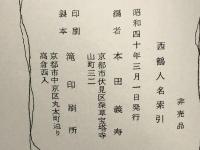 非売品
西鶴人名索引
昭和四十年三月一日発行
編者 本田義寿
京都市伏見区深草宝塔寺
山町三二
印刷
製本 滝印刷所
京都市中京区丸太町通り
高倉西入